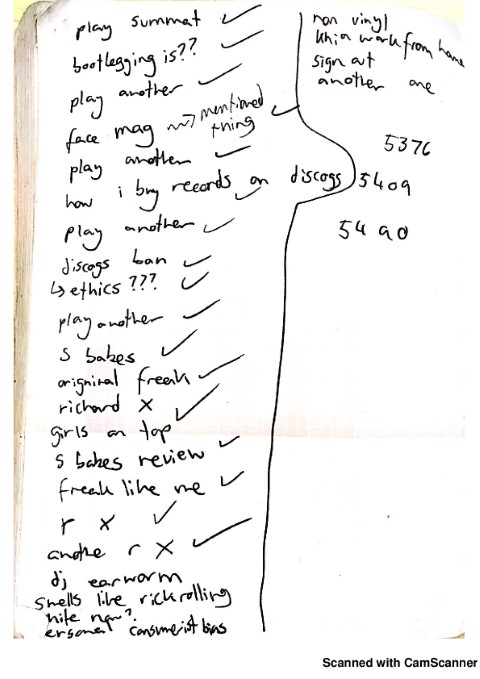 play summat ✓
bootlegging is?? ✓
play another ✓
face mag ⇝ mentioned thing ✓
play another ✓
how i buy records on discogs ✓
play another ✓
discogs ban ✓
↳ ethics ??? ✓
play another ✓
s babes ✓
originral freak ✓
richard x ✓
girls on top
s babes review ✓
freak like me ✓
r x ✓
anothe r x ✓
dj earworm
smells like rickrolling
nite
consumerist bias
non vinyl
khia work from home
sign out
another one
5376
5409
5490
Scanned with CamScanner